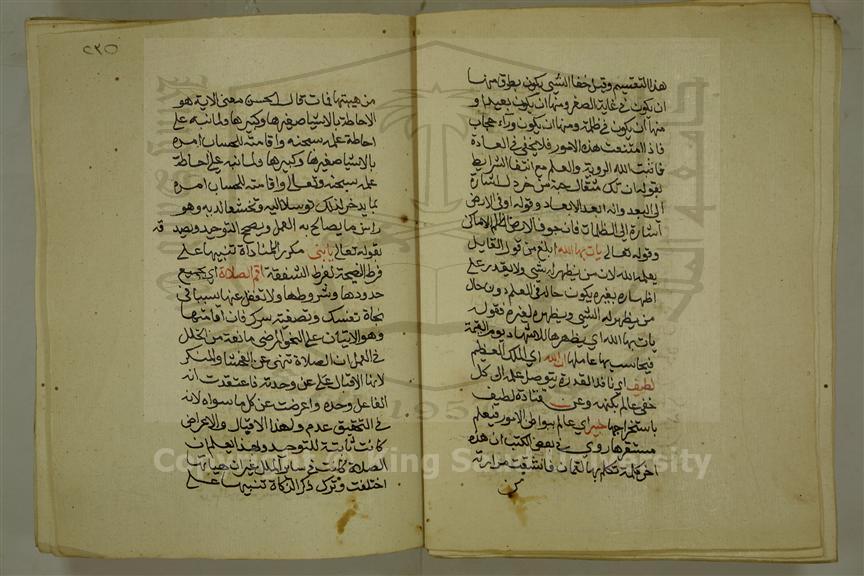 هذا التقسيم وقيل خفا الشي يكون بطرق منها
ان يكون في غاية الصغر ومنها ان يكون بعيدا و
منها ان يكون في ظلمة ومنها ان يكون وراء حجاب
فاذا امتنعت هذه الامور فلا يخفى في العادة
فاثبت الله الروية والعلم مع انتفا الشرايط
بقوله ان تك مثقال حبة من خردل اشارة
الى البعد وانه ابعد الابعاد وقوله او في الارض
اشارة الى الظلمات فان جوف الارض اظلم الاماكن
وقوله تعالى يات بها الله ابلغ من قول القايل
يعلمه الله لان من يظهر له شي ولا يقدر على
اظهاره بغيره يكون حاله في العلم دون حال
من يظهر له الشي ويظهره لغيره فقوله
يات بها الله اي يظهرها للاشهاد يوم القيمة
فيحاسب بها عاملها ان الله اي الملك العظيم
لطيف اي نافذ القدرة يتوصل علمه الى كل
خفي عالم بكنهه وعن قتادة لطيف
باستخراجها خبير اي عالم ببواطن الامور فيعلم
مستقرها روي في بعض الكتب ان هذه
اخر كلمة تكلم بها لقمان فانشقت مرارته
من
٢٣٥
من هيبتها فمات قال الحسن معنى الاية هو
الاحاطة بالاشيا صغيرها وكبيرها ولما نبه على
احاطة علمه سبحنه واقامته للحساب امره
بالاشيا صغيرها وكبيرها ولما نبه على احاطة
علمه سبحنه وتعالى واقامته للحساب امره
بما يدخر لذلك توسلا اليه وتخشعا لديه وهو
راس ما يصالح به العمل ويصح التوحيد ويصد قه
بقوله تعالى يابني مكررا للمناداة تنبيها على
فرط النصيحة لفرط الشفقة اقم الصلاة اي بجميع
حدودها وشروطها ولا تغفل عنها سببا في
نجاة نفسك وتصفية سرك فان اقامتها
وهو الاتيان على النحو المرضي مانعة من الخلل
في العمل ان الصلاة تنهى عن الفحشا والمنكر
لانها الاقبال على من وحدته فاعتقدت انه
الفاعل وحده واعرضت عن كل ما سواه لانه
في التحقيق عدم ولهذا الاقبال والاعراض
كانت ثانية للتوحيد وبهذا يعلم ان
الصلاة كانت في ساير الملل غير ان هياتها
اختلفت وترك ذكر الزكاة تنبيها على
Copyright © King Saud University
1957